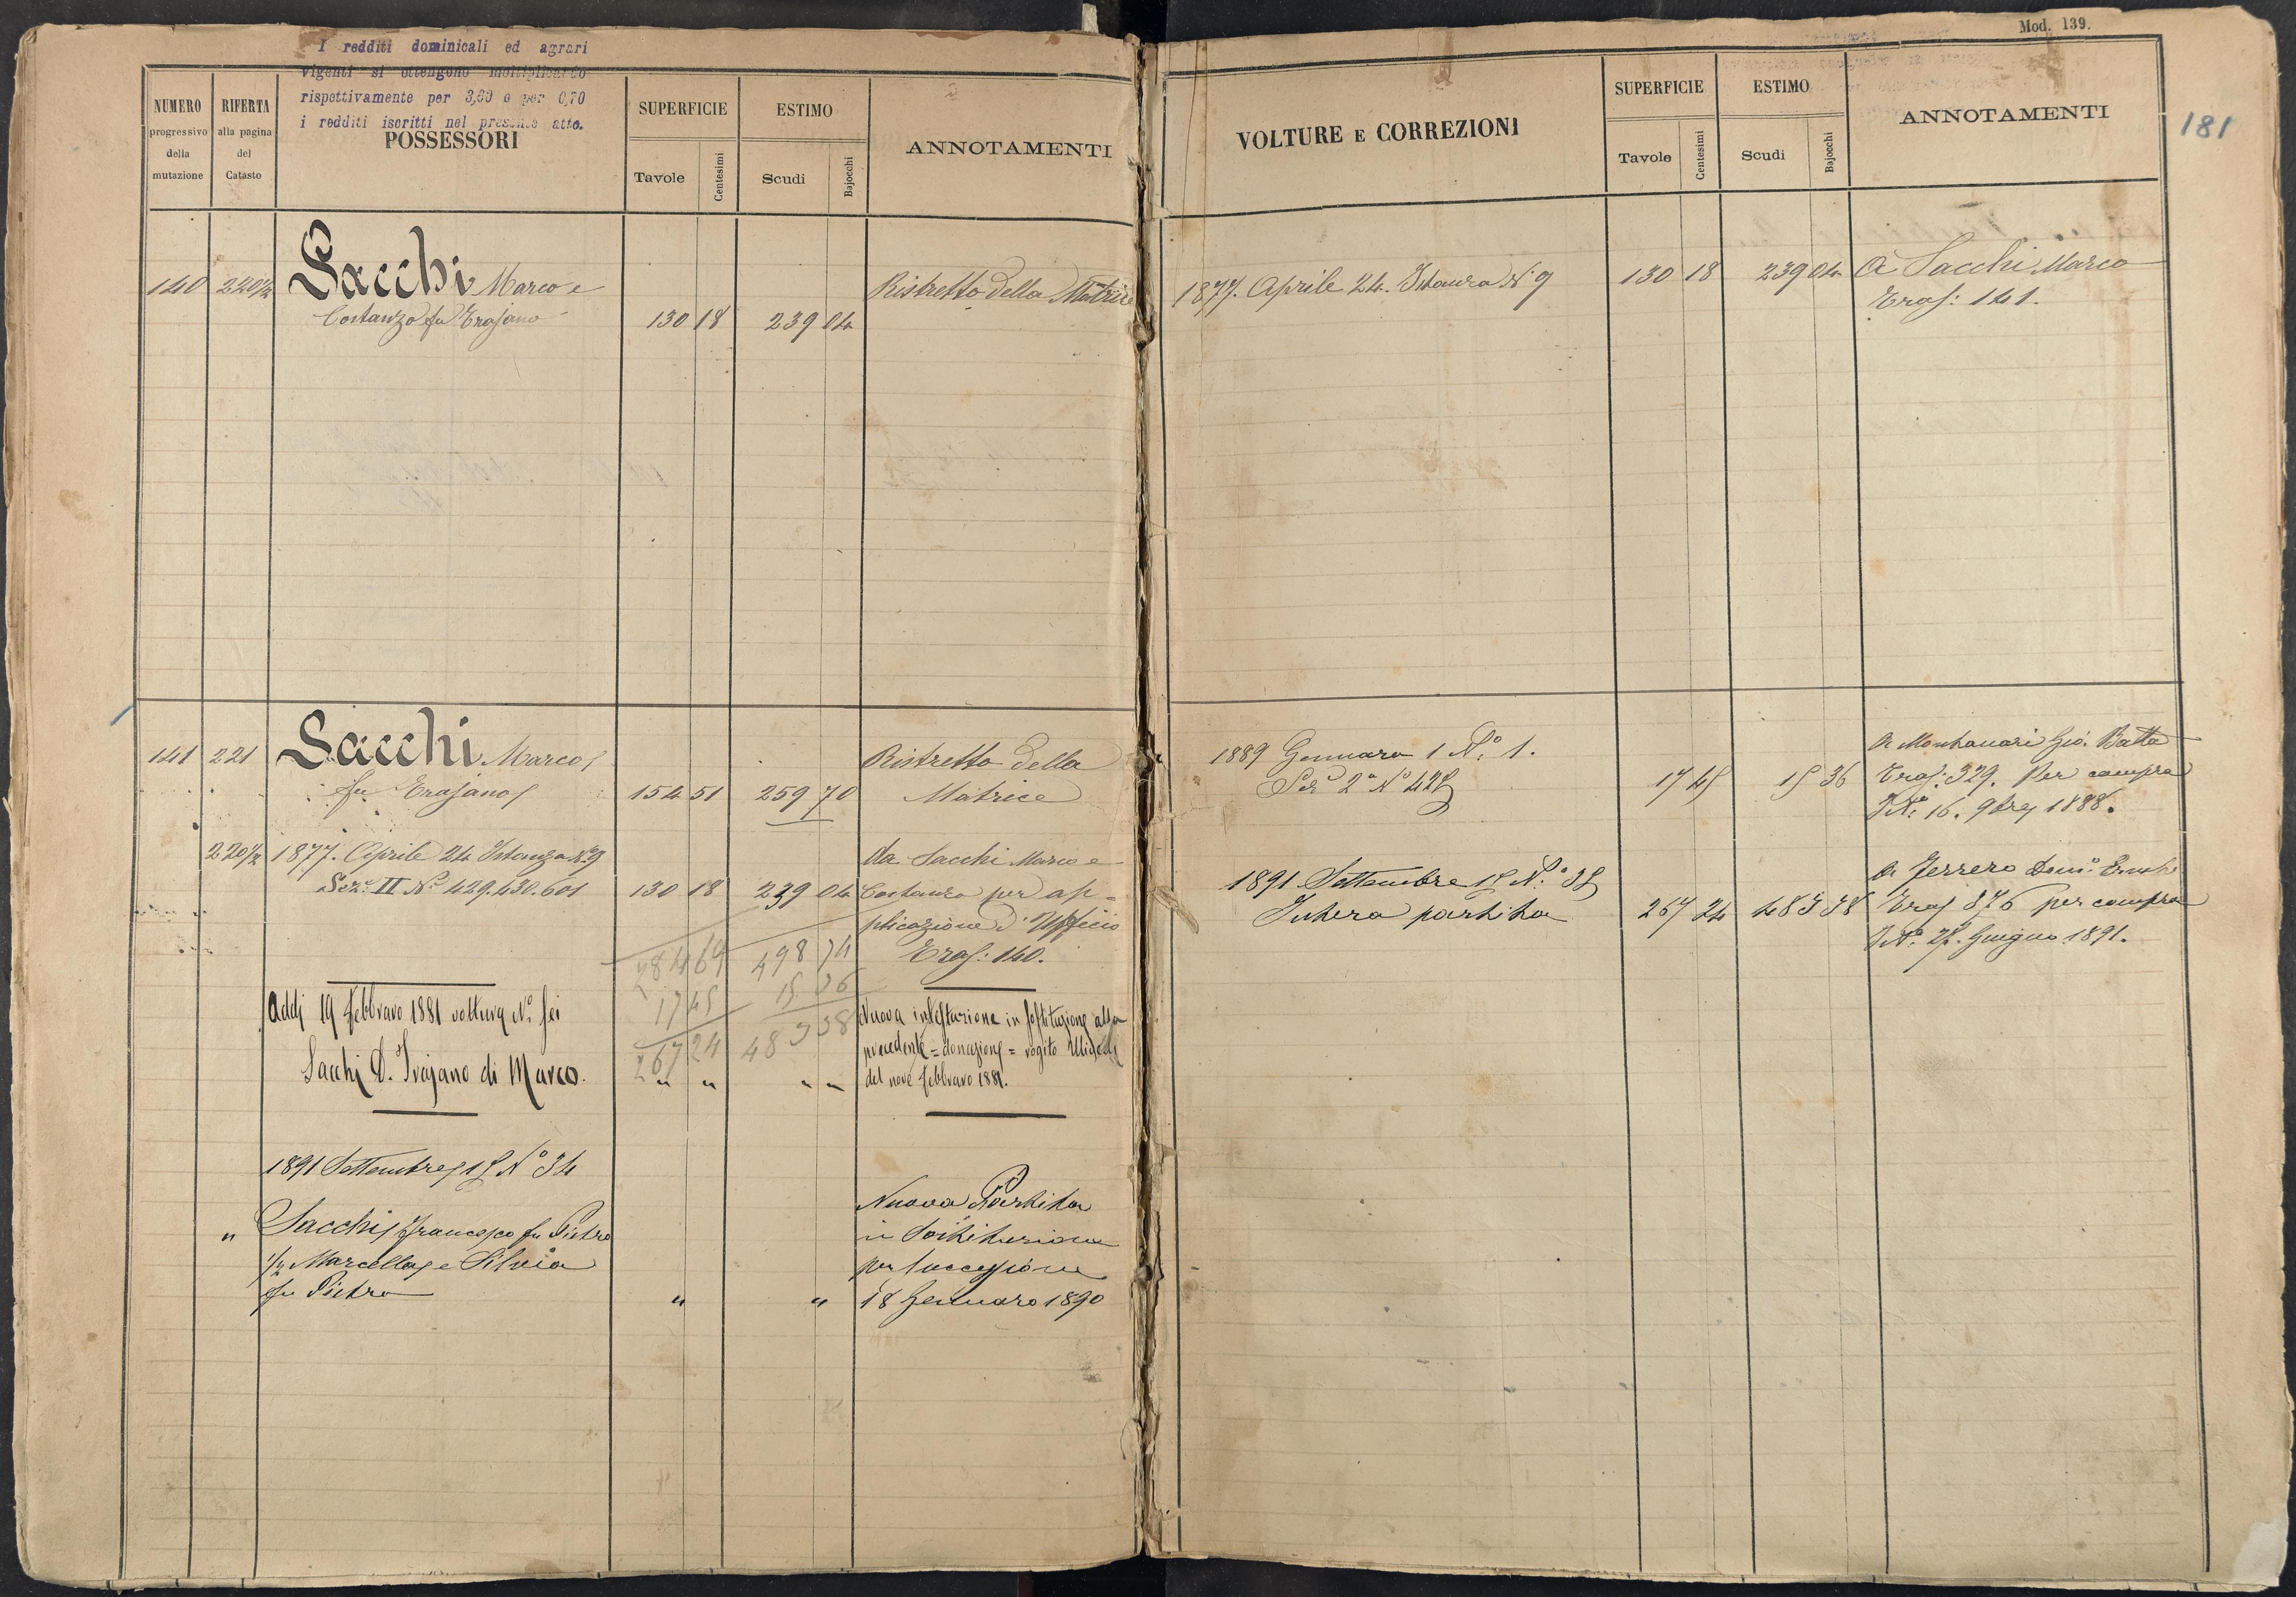 I redditi dominicali ed agrari
vigenti si ottengono moltiplicando
rispettivamente per 3,60 e per 0,70
i redditi iscritti nel presente atto.
NUMERO
progressivo
della
mutazione
RIFERTA
alla pagina
del
Catasto
POSSESSORI
SUPERFICIE
Tavole
Centesimi
ESTIMO
Scudi
Bajocchi
ANNOTAMENTI
140 220½ Sacchi Marco e Ristretto della Matrice
Costanzo fu Trajano 130 18 239 04
141 221 Sacchi Marco Ristretto della
fu Trajano 154 51 259 70 Matrice
220½ 1877. Aprile 24 Istanza N° 9 da Sacchi Marco e
Sez: II N° 429.430.601 130 18 239 04 Costanzo per ap=
plicazione d'Ufficio
284 69 498 74 Traj: 140.
17 45 15 36
267 24 483 38
Addj 19 Febbraro 1881 voltura N° sei Nuova intestazione in sostituzione alla
precedente = donazione = rogito
Sacchi D. Trajano di Marco. " " " " del nove Febbraro 1881.
1891 Settembre 15 N° 34
Nuova Partita
" Sacchi Francesco fu Pietro in Sostituzione
½ Marcella e Silvia per successione
fu Pietro " " 18 Gennaro 1890
Mod. 139.
181
VOLTURE E CORREZIONI
SUPERFICIE
Tavole
Centesimi
ESTIMO
Scudi
Bajocchi
ANNOTAMENTI
1877. Aprile 24. Istanza N° 9 130 18 239 04 A Sacchi Marco
Traj: 141.
1889 Gennaro 1 N° 1. A Montanari Gio. Batta
Sez 2a N° 428 17 45 15 36 Traj: 329. Per compra
N° 16. 9bre 1888.
1891 Settembre 15 N° 35 A Ferrero Dom°
Intera partita 267 24 483 38 Traj 376 per compra
Giugno 1891.